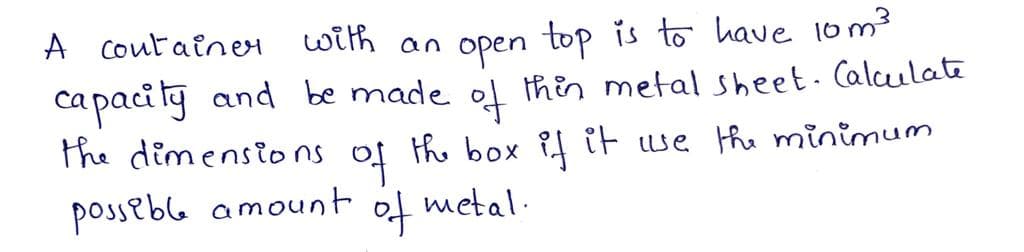 A container with an open top is to have 10 m³
capacity and be made of thin metal sheet. Calculate
the dimensions of the box if it use the minimum
possible amount of metal.